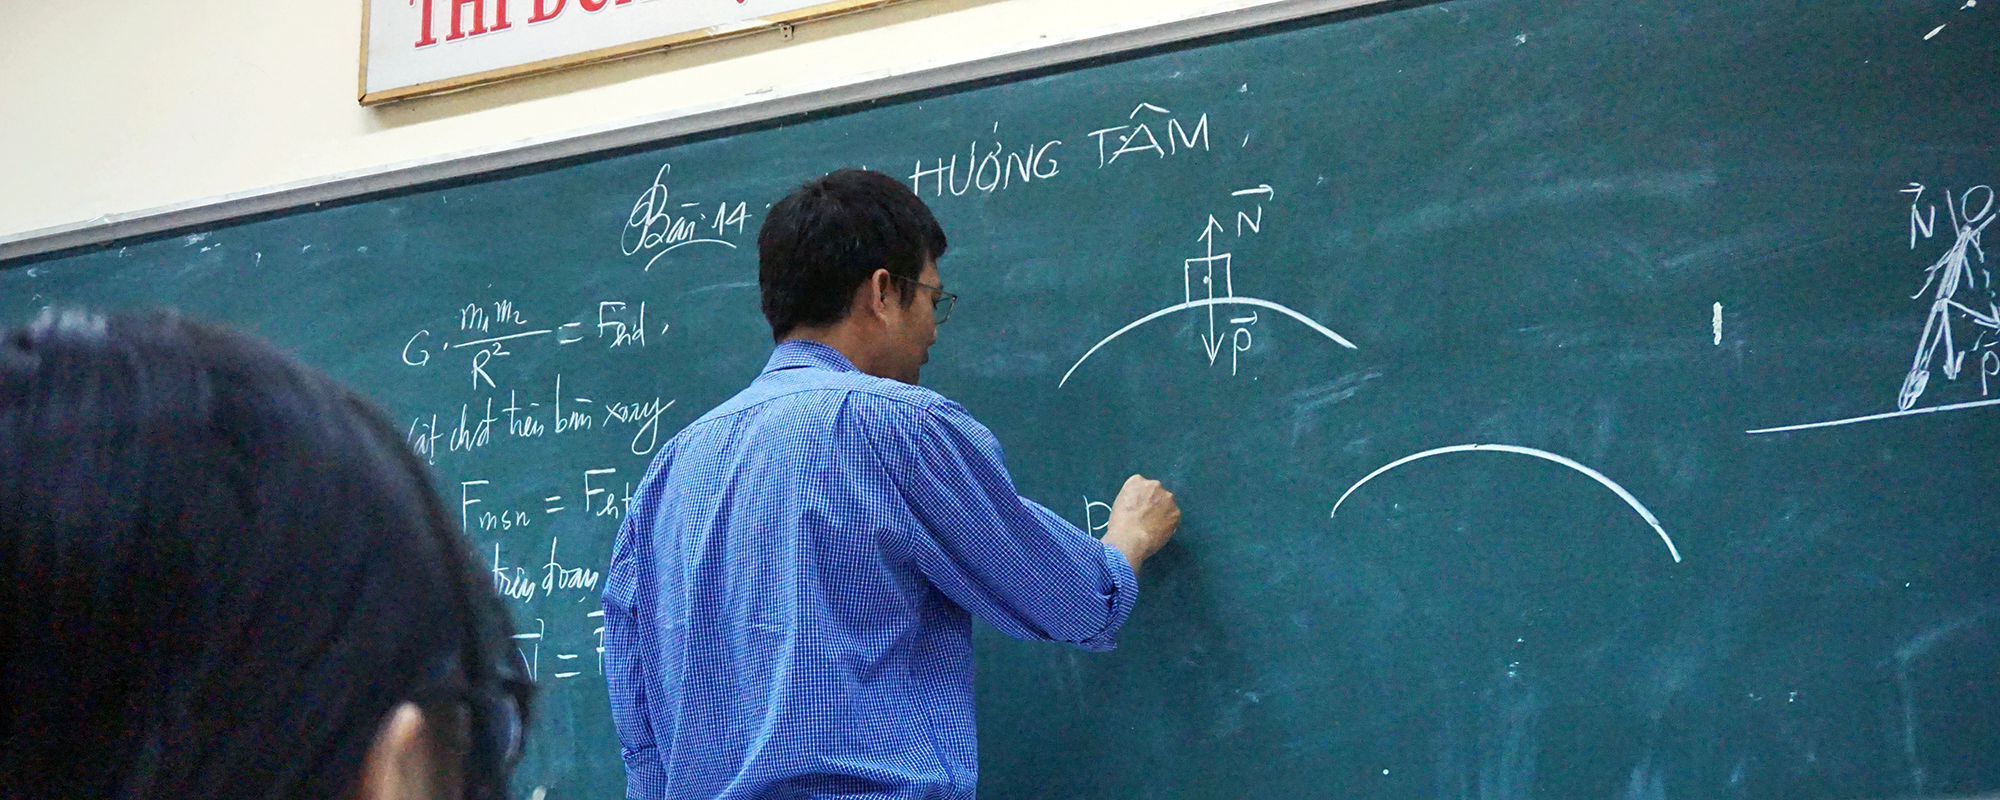 THI Đ
Bài 14:
HƯỚNG TÂM
G. m₁m₂ / R² = Fhd.
vật chđ trên bàn xoay
Fmsn = Fht
trên đoạn
N⃗ = F
N⃗
P⃗
P
N⃗
P⃗